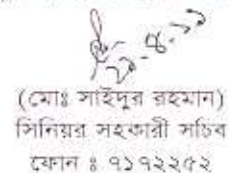 ২১.৪.১১
(মোঃ সাইদুর রহমান)
সিনিয়র সহকারী সচিব
ফোন ঃ ৭১৭২২৫২